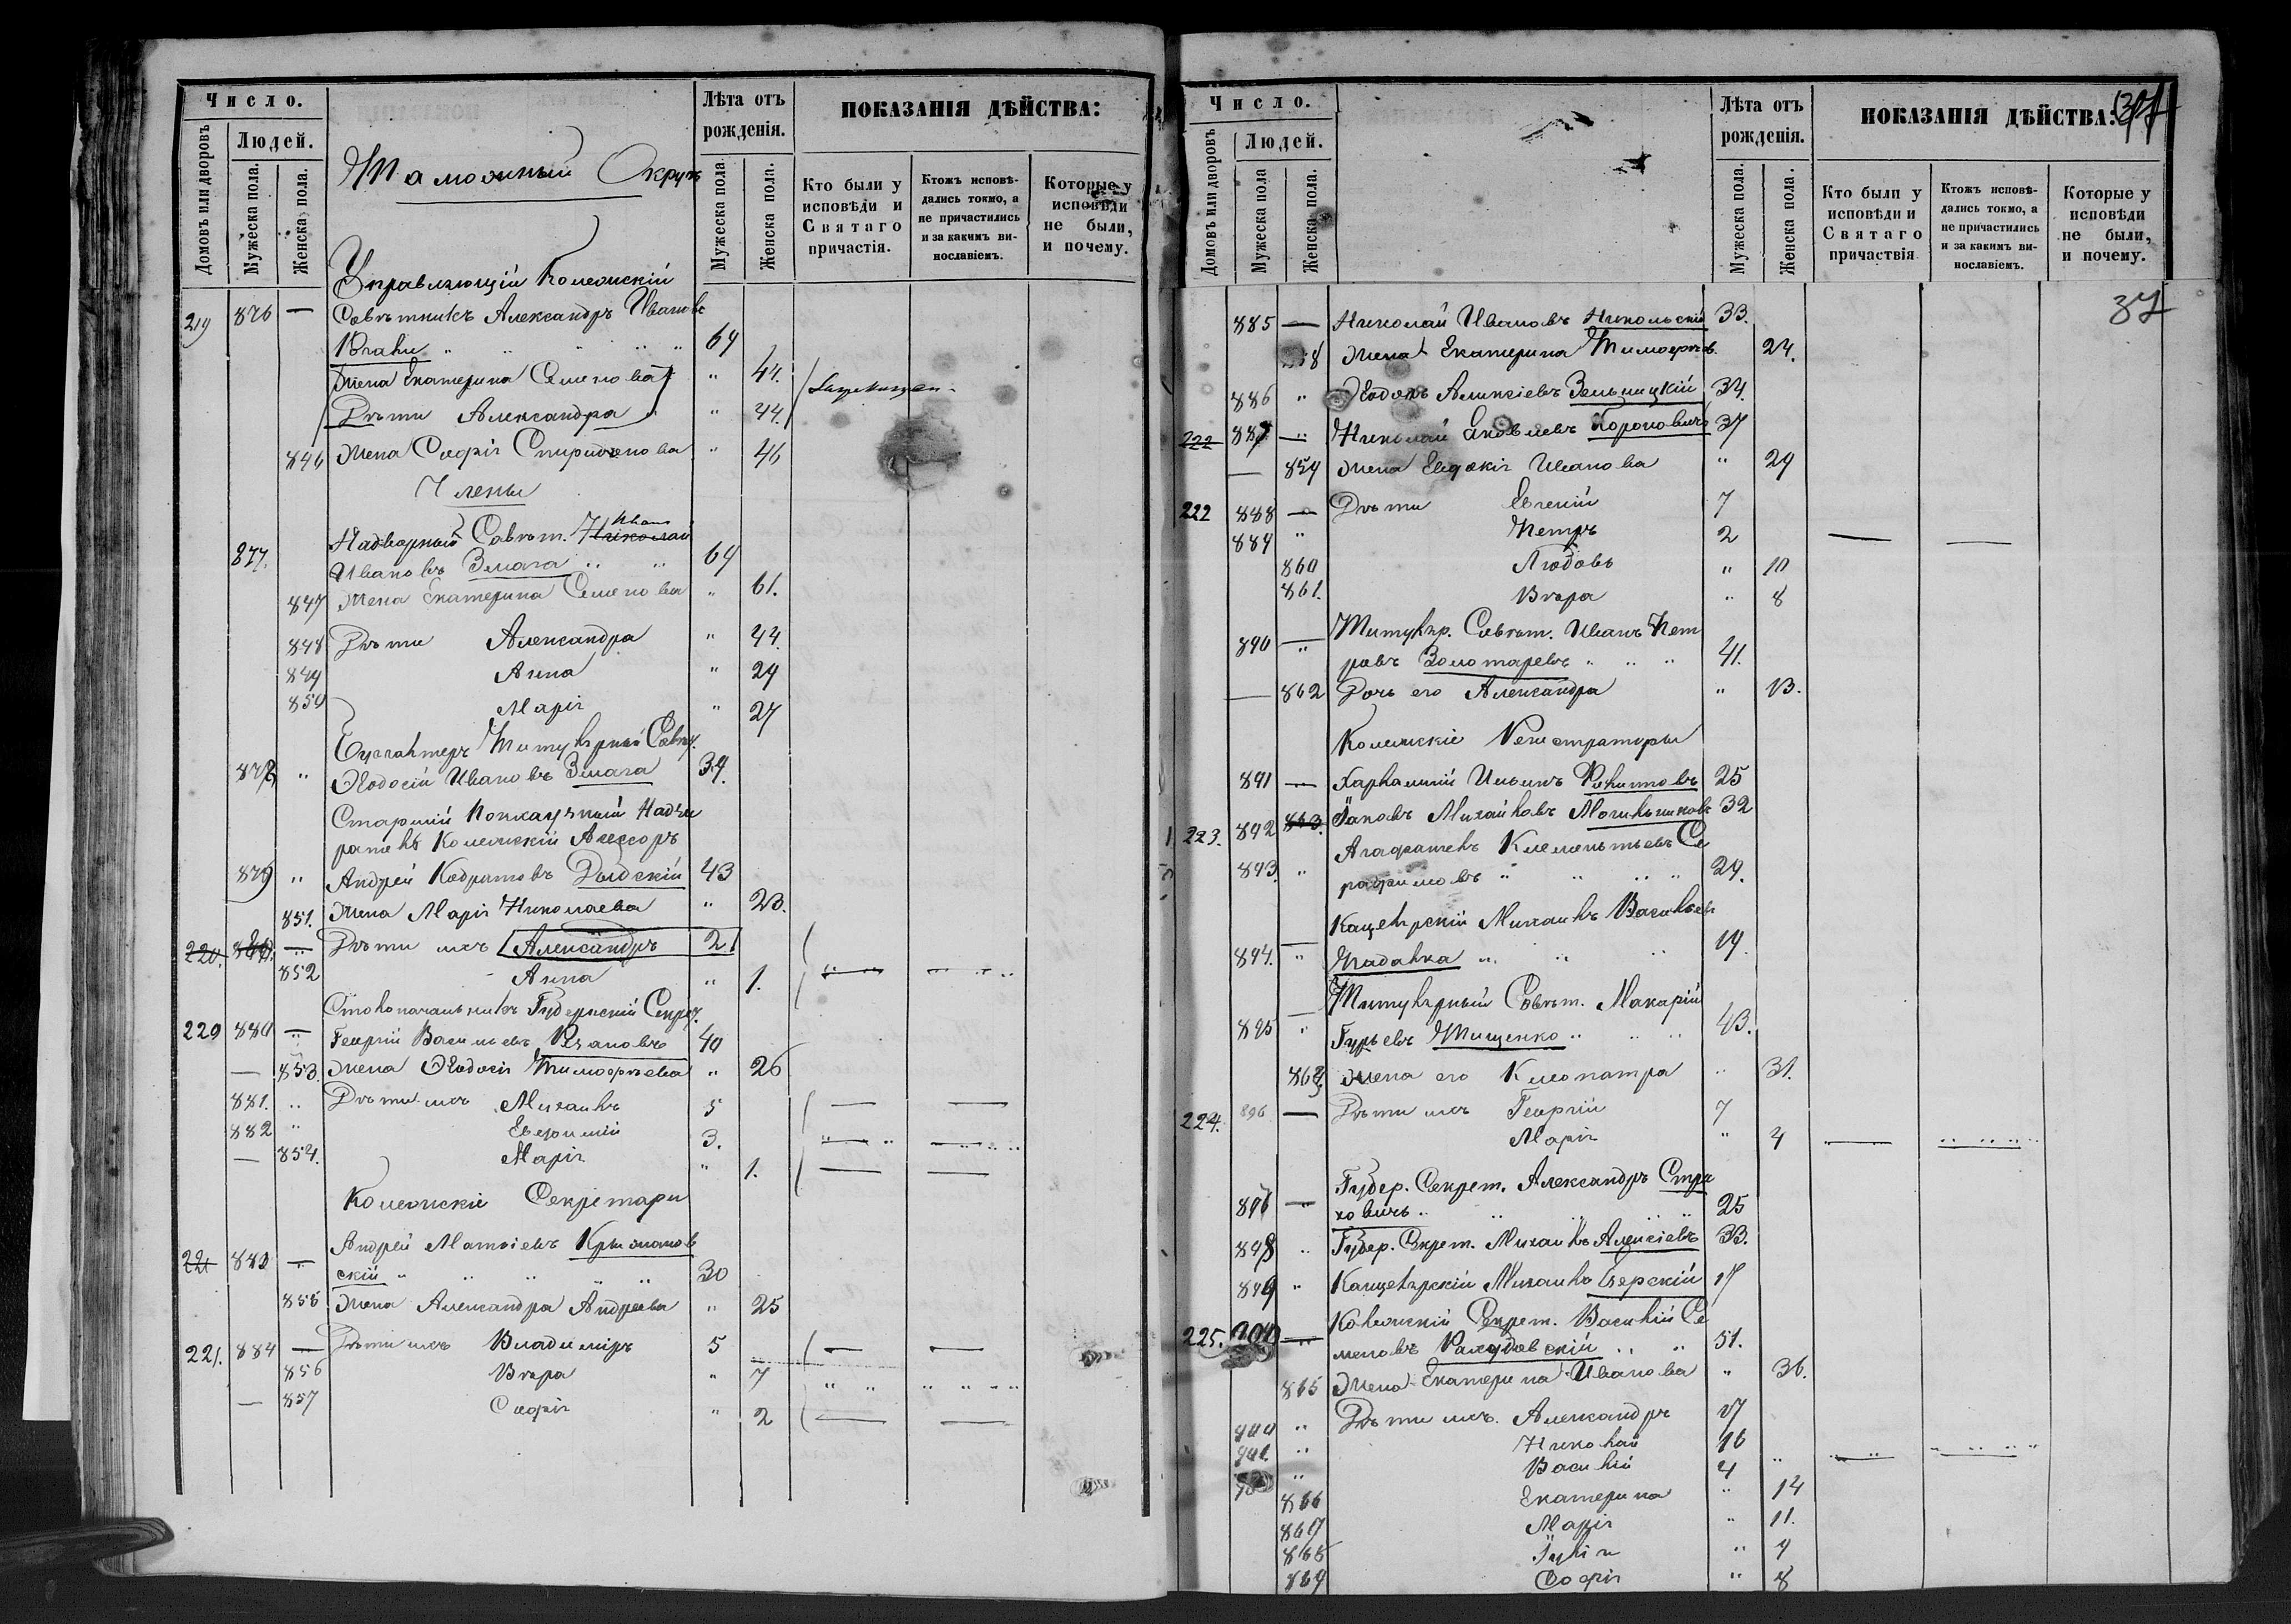 Число.
Лѣта отъ рожденія.
ПОКАЗАНІЯ ДѢЙСТВА:
Домовъ или дворовъ
Людей.
Мужеска пола.
Женска пола.
Таможный Округъ
Мужеска пола
Женска пола.
Кто были у исповѣди и Святаго причастія.
Ктожъ исповѣдались токмо, а не причастились и за какимъ винославіемъ.
Которые у исповѣди не были, и почему.
Управляющій Колежскій
219 876 — Совѣтникъ Александръ Ивановъ
64
Жена Екатерина Семенова " 44.
Дѣти Александра " 44.
846 Жена Софія Спиридонова " 46
Члены
Надворный Совѣт. Николай Иванъ
877. Ивановъ Змага 64
847 Жена Екатерина Семенова " 61.
848 Дѣти Александра " 44.
849 Анна " 29
850 Марія " 27
Титулярный Совѣт.
878 " Ѳеодосій Ивановъ Змага 34.
Старшій Надзи
ратель Колежскій Асессоръ
879 " Андрей Кодратовъ 43
851. Жена Марія Николаева " 23.
220. — Дѣти ихъ Александръ 2
852 Анна " 1.
Столоначальникъ Губернскій Секрет.
220 880 — Георгій Васильевъ 40
— 853. Жена Ѳеодосія Тимофѣева " 26
881. " Дѣти ихъ Михаилъ 5
882 " Евфимій 3.
— 854. Марія " 1.
Колежскіе Секретари
221 883 — Андрей Матѳіевъ Крыжанов
скій " 30
855 Жена Александра Андреева " 25
221. 884 — Дѣти ихъ Владиміръ 5
856 Вѣра " 7
— 857 Софія " 2
Число.
Лѣта отъ рожденія.
ПОКАЗАНІЯ ДѢЙСТВА:
Домовъ или дворовъ
Людей.
Мужеска пола
Женска пола.
Мужеска пола.
Женска пола.
Кто были у исповѣди и Святаго причастія
Ктожъ исповѣдались токмо, а не причастились и за какимъ винославіемъ.
Которые у исповѣди не были, и почему.
37
885 — Николай Ивановъ Никольскій 33.
858 Жена Екатерина Тимофѣев. 24.
886 " Алексіевъ 34.
222 887 — Николай Яковлевъ Короповичъ 37
— 859 Жена Евдокія Иванова " 29
222 888 — Дѣти Евгеній 7
889 " Петръ 2
860 Любовь " 10
861. Вѣра " 8
Титуляр. Совѣт. Иванъ Пет
890 — ровъ Золотаревъ " 41.
— 862 Дочь его Александра " 13.
Колежскіе Регистраторы
891 — Харлампій Ильинъ 25
223. 892 863. Іаковъ Михайловъ Могильниковъ 32
Агафангелъ Клементьевъ Се
893. " рафимовъ " 29.
Канцелярскій Михаилъ Васильевъ
894. " 19.
Титулярный Совѣт. Макарій
895 " Гурьевъ Тищенко " 43.
863 Жена его Клеопатра " 31.
224. 896 — Дѣти ихъ Георгій 7
Марія " 4
Губер. Секрет. Александръ Стра
897 — ховичъ " 25
898 " Губер. Секрет. Михаилъ Алексіевъ 33.
899 " Канцелярскій Михаилъ 17
Колежскій Секрет. Василій Се
225. 900 — меновъ 51.
865 Жена Екатерина Иванова " 36.
" Дѣти ихъ Александръ 17
" Николай 16
" Василій 4
866 Екатерина " 14
867 Марія " 11.
868 Юлія " 9
869 Софія " 8